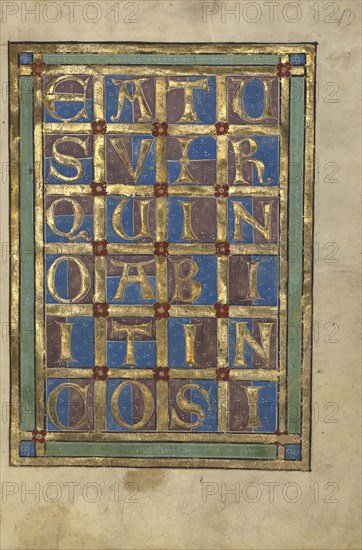 EATU
SVIR
QUIN
OABI
ITIN
COSI
PHOTO12